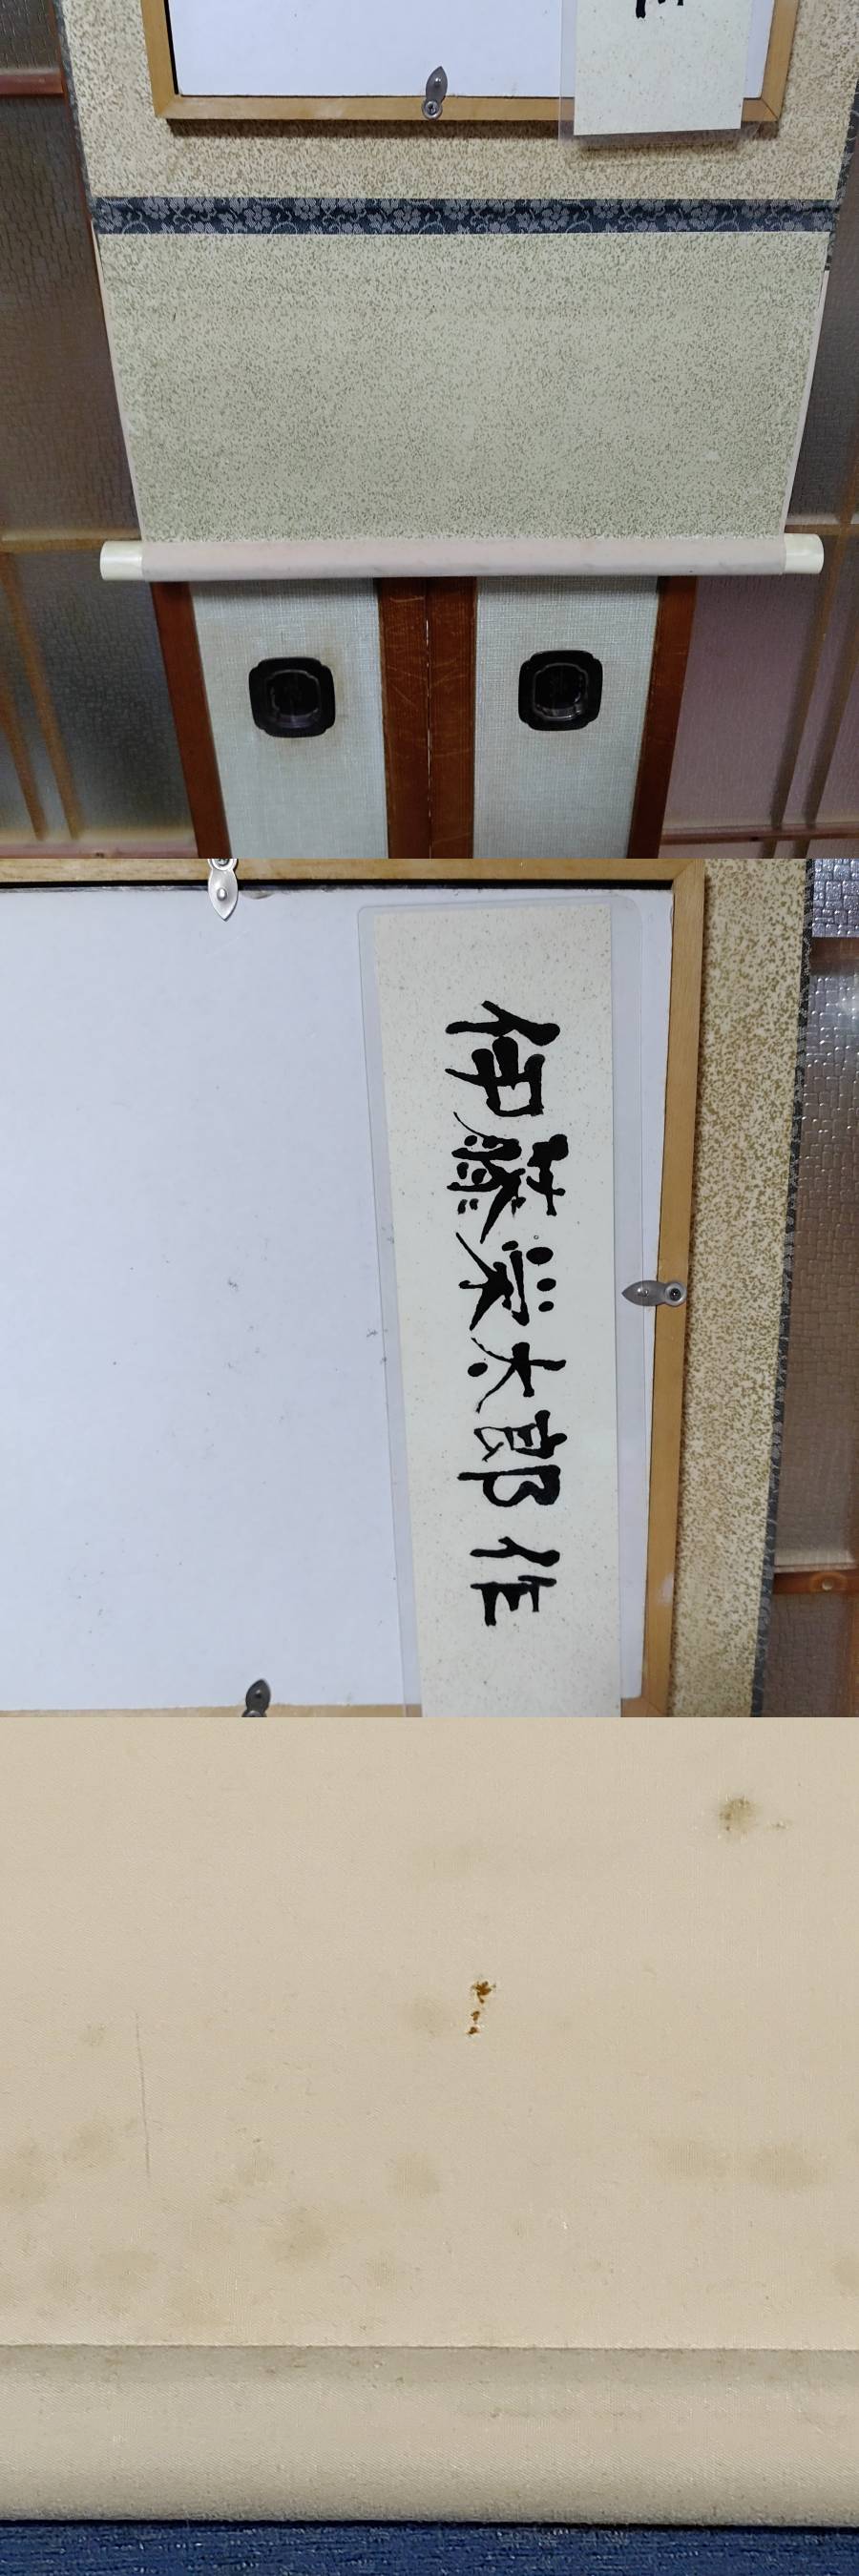 伊藤栄太郎作